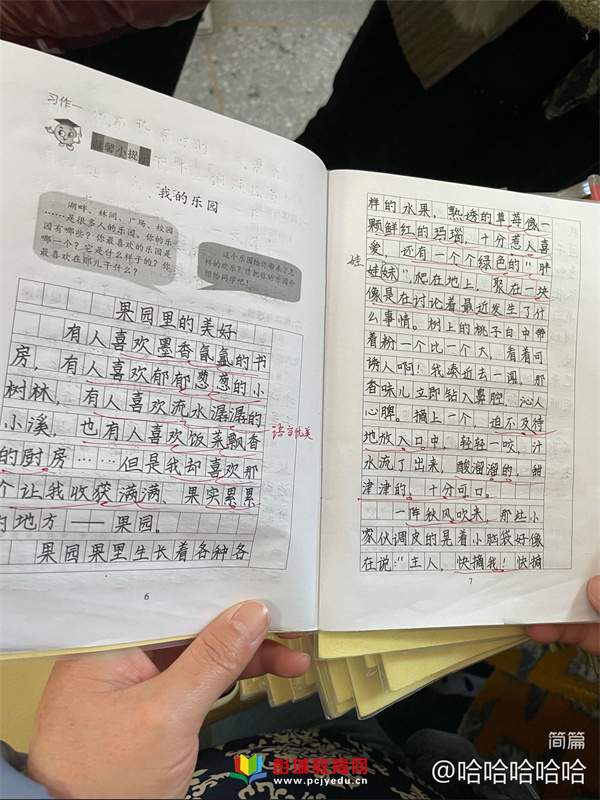 习作一
温馨小提示
我的乐园
湖畔、林间、广场、校园
……是很多人的乐园。你的乐
园有哪些？你最喜欢的乐园是
哪一个？它是什么样子的？你
最喜欢在那儿干什么？
这个乐园给你带来了怎
样的欢乐？请把你的乐园介
绍给同学吧！
果园里的美好
有人喜欢墨香氤氲的书
房，有人喜欢郁郁葱葱的小
树林，有人喜欢流水潺潺的
小溪，也有人喜欢饭菜飘香
的厨房……但是我却喜欢那
个让我收获满满、果实累累
的地方——果园。
果园果里生长着各种各
语言优美
6
样的水果，熟透的草莓像一
颗鲜红的玛瑙，十分惹人喜
爱，还有一个个绿色的"胖
娃
娃妹"，爬在地上，聚在一块
像是在讨论着最近发生了什
么事情。树上的桃子白中带
着粉一个比一个大，看着可
诱人啊！我凑近去一闻，那
香味儿立即钻入鼻腔，沁人
心脾。摘上一个，迫不及待
地放入口中，轻轻一咬，汁
水流了出来，酸溜溜的，甜
津津的。十分可口。
一阵秋风吹来，那些小
家伙调皮的晃着小脑袋好像
在说："主人，快摘我！快摘
7
彭城教育网
www.pcjyedu.cn
简篇
@哈哈哈哈哈